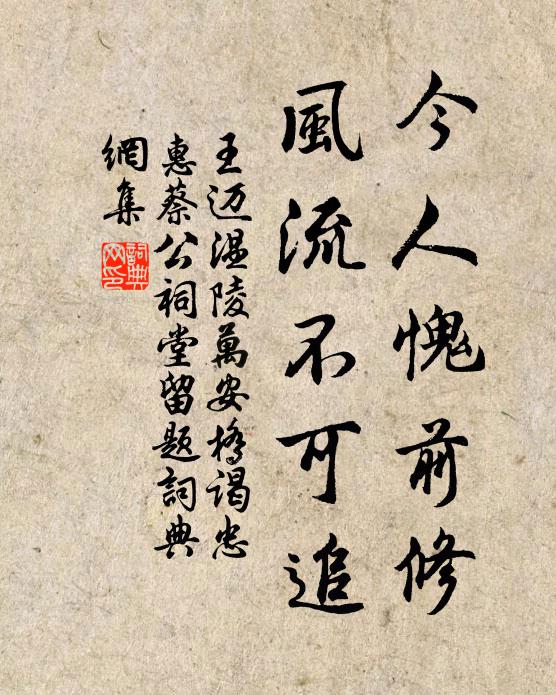 今人愧前修
風流不可追
王迈温陵萬安橋谒忠
惠蔡公祠堂留题詞典
網集
詞典
网印